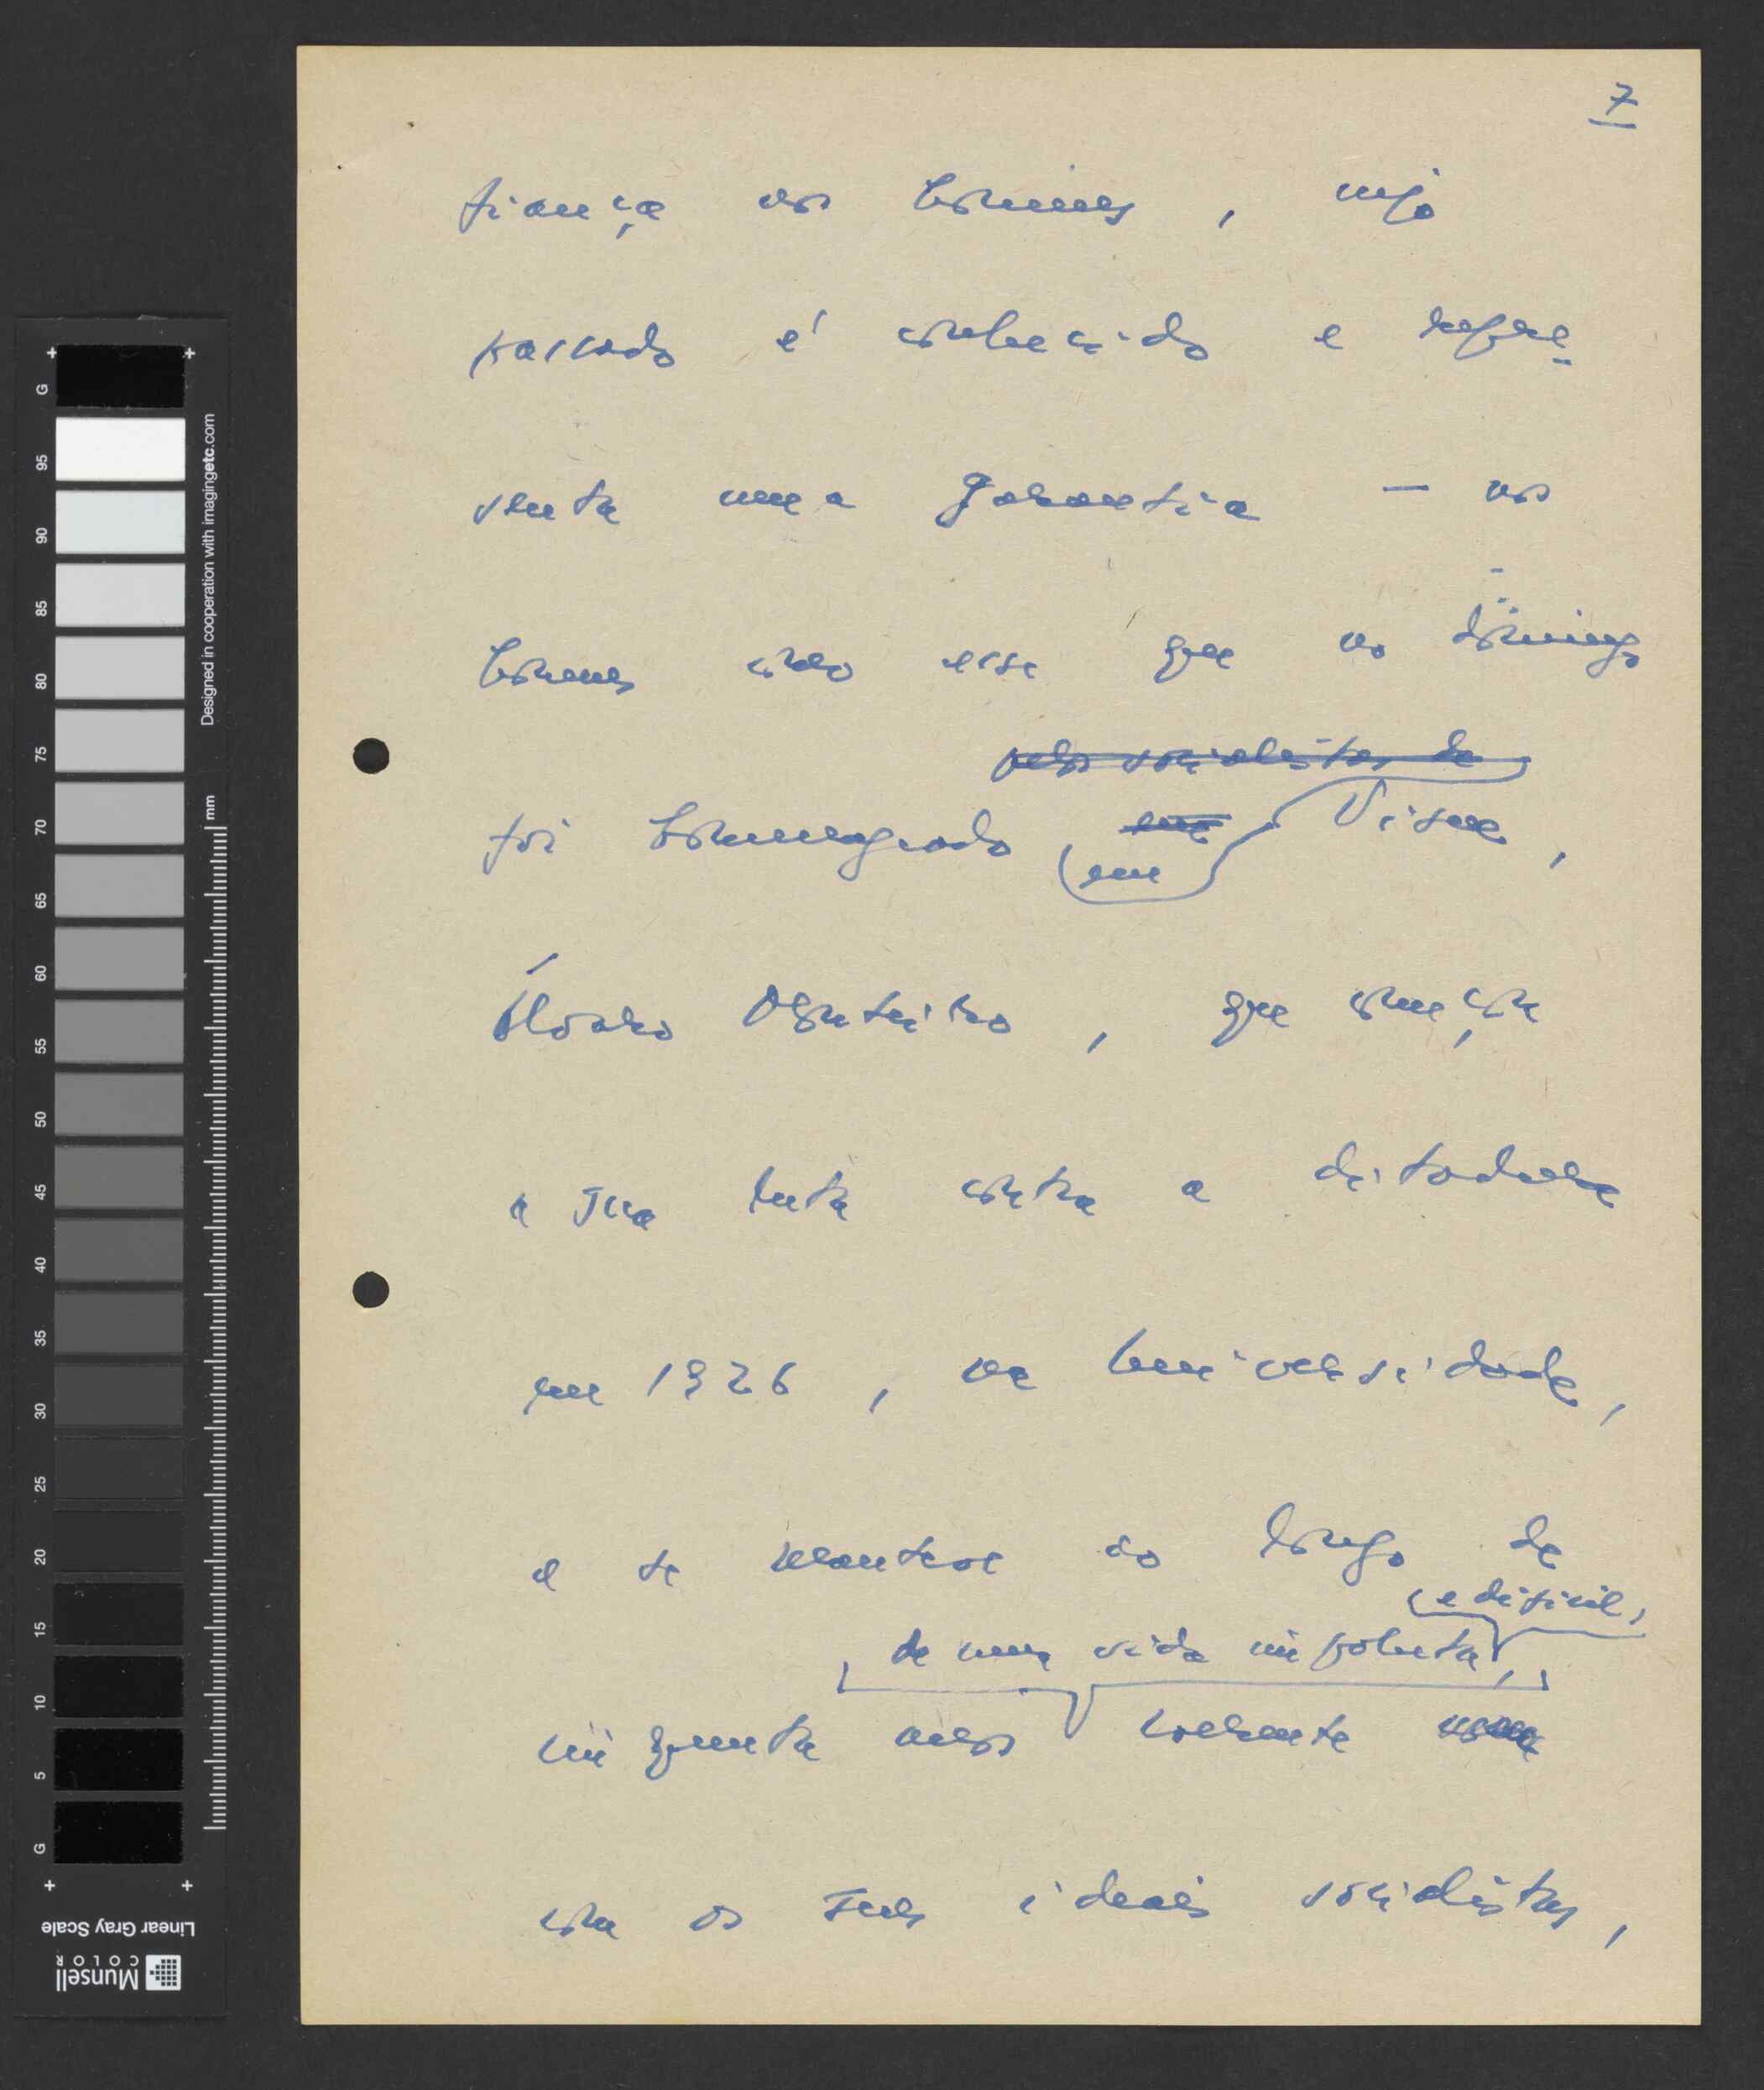 7
fiança nos homens, cujo
passado é conhecido e repre-
senta uma garantia — nos
homens como esse que no domingo
pelos socialistas de
foi homenageado em Viseu,
Álvaro Monteiro, que começou
a sua luta contra a ditadura
em 1926, na Universidade,
e se manteve ao longo de
e difícil,
de uma vida impoluta,
cinquenta anos coerente
com os seus ideais socialistas,
G
95
90
85
80
75
70
65
60
55
50
45
40
35
30
25
20
15
10
5
G
mm
Designed in cooperation with imagingetc.com
Linear Gray Scale
Munsell
COLOR